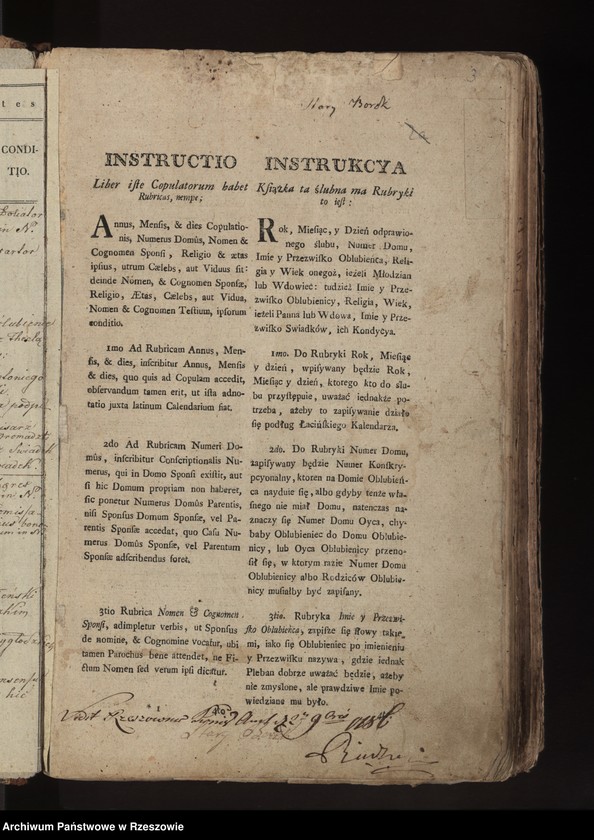 3
Stary Borek
INSTRUCTIO
Liber iſte Copulatorum habet
Rubricas, nempe;
Annus, Menſis, & dies Copulatio-
nis, Numerus Domûs, Nomen &
Cognomen Sponſi, Religio & ætas
ipſius, utrum Cælebs, aut Viduus ſit:
deinde Nomen, & Cognomen Sponſæ,
Religio, Ætas, Cælebs, aut Vidua,
Nomen & Cognomen Teſtium, ipſorum
conditio.
1mo Ad Rubricam Annus, Men-
ſis, & dies, inſcribitur Annus, Menſis
& dies, quo quis ad Copulam accedit,
obſervandum tamen erit, ut iſta adno-
tatio juxta latinum Calendarium fiat.
2do Ad Rubricam Numeri Do-
mûs, inſcribitur Conſcriptionalis Nu-
merus, qui in Domo Sponſi exiſtit, aut
ſi hic Domum propriam non haberet,
ſic ponetur Numerus Domûs Parentis,
niſi Sponſus Domum Sponſæ, vel Pa-
rentis Sponſæ accedat, quo Caſu Nu-
merus Domûs Sponſæ, vel Parentum
Sponſæ adſcribendus foret.
3tio Rubrica Nomen & Cognomen
Sponſi, adimpletur verbis, ut Sponſus
de nomine, & Cognomine vocatur, ubi
tamen Parochus bene attendet, ne Fi-
ctum Nomen ſed verum ipſi dicatur.
INSTRUKCYA
Kſiążka ta ślubna ma Rubryki
to ieſt:
Rok, Mieſiąc, y Dzień odprawio-
nego ślubu, Numer Domu,
Imie y Przezwiſko Oblubieńca, Reli-
gia y Wiek onegoż, ieżeli Młodzian
lub Wdowiec: tudzież Imie y Prze-
zwiſko Oblubienicy, Religia, Wiek,
ieżeli Panna lub Wdowa, Imie y Prze-
zwiſko Swiadków, ich Kondycya.
1mo. Do Rubryki Rok, Mieſiąc
y dzień, wpiſywany będzie Rok,
Mieſiąc y dzień, ktorego kto do ślu-
bu przyſtępuie, uważać iednakże po-
trzeba, ażeby to zapiſywanie działo
ſię podług Łacińſkiego Kalendarza.
2do. Do Rubryki Numer Domu,
zapiſywany będzie Numer Konſkry-
pcyonalny, ktoren na Domie Oblubień-
ca nayduie ſię, albo gdyby tenże wła-
ſnego nie miał Domu, natenczas na-
znaczy ſię Numer Domu Oyca, chy-
baby Oblubieniec do Domu Oblubie-
nicy, lub Oyca Oblubienicy przeno-
ſił ſię, w ktorym razie Numer Domu
Oblubienicy albo Rodziców Oblubie-
nicy muſiałby być zapiſany.
3tio. Rubryka Imie y Przezwi-
ſko Oblubieńca, zapiſze ſię ſłowy takie-
mi, iako ſię Oblubieniec po imienieniu
y Przezwiſku nazywa, gdzie iednak
Pleban dobrze uważać będzie, ażeby
nie zmyſlone, ale prawdziwe Imie po-
wiedziane mu było.
Stary
tes
CONDI-
TIO.
Archiwum Państwowe w Rzeszowie